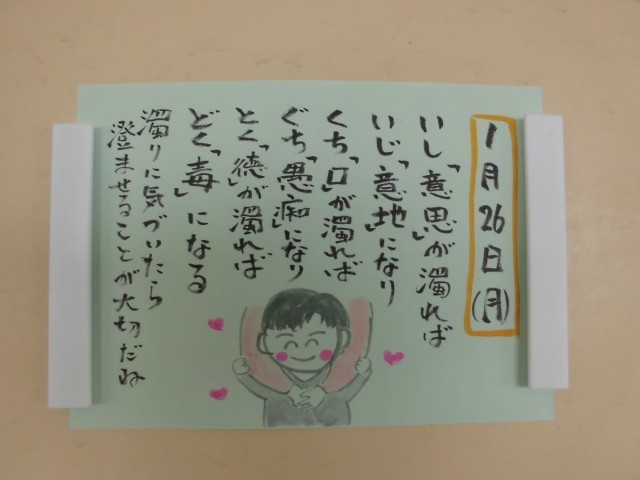 1月26日(月)
いし「意思」が濁れば
いじ「意地」になり
くち「口」が濁れば
ぐち「愚痴」になり
とく「徳」が濁れば
どく「毒」になる
濁りに気づいたら
澄ませることが大切だね